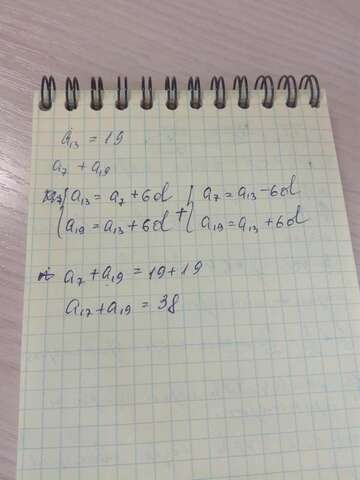 a₁₃ = 19
a₇ + a₁₉
{ a₁₃ = a₇ + 6d { a₇ = a₁₃ - 6d
{ a₁₉ = a₁₃ + 6d + { a₁₉ = a₁₃ + 6d
a₇ + a₁₉ = 19 + 19
a₁₇ + a₁₉ = 38